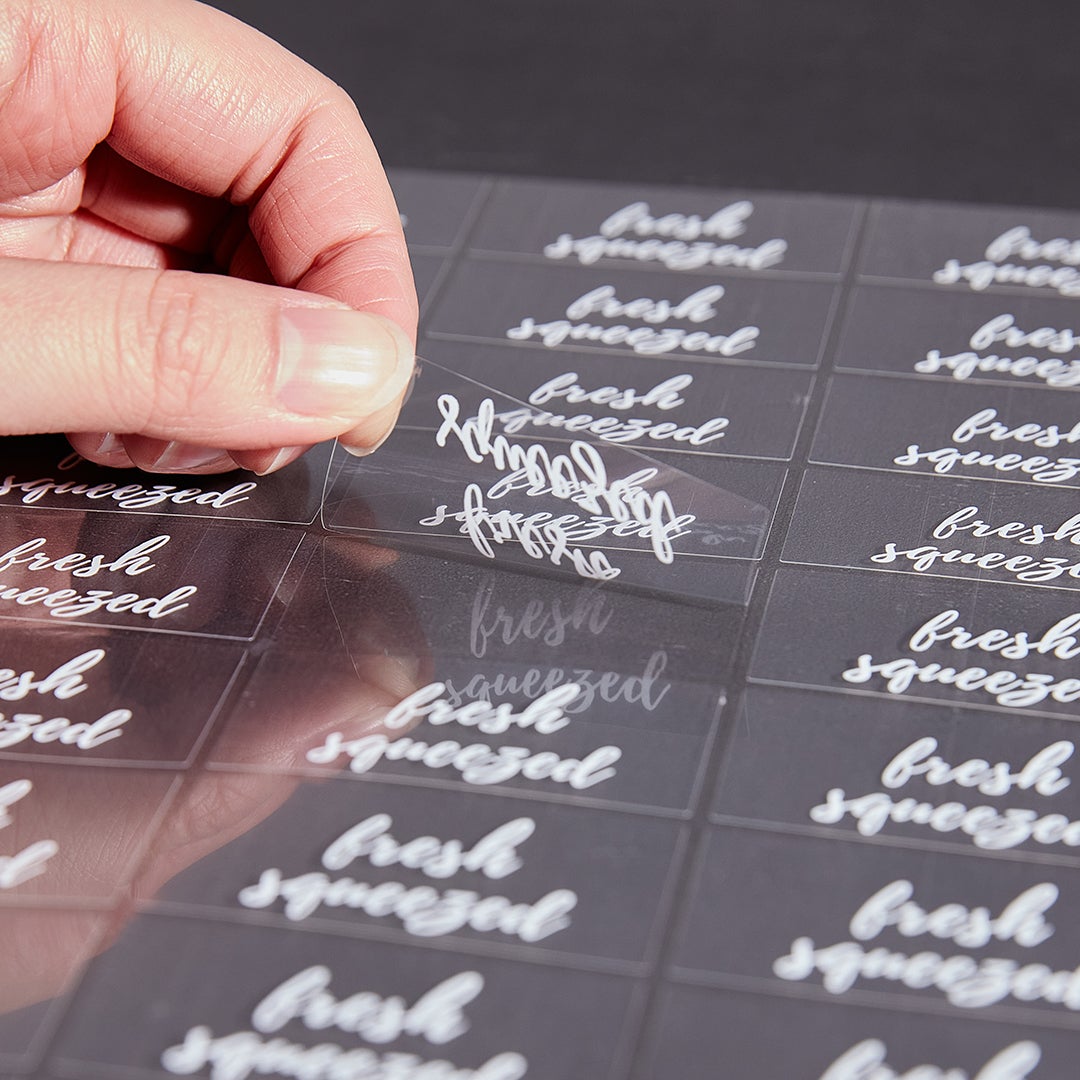 fresh
squeezed
fresh
fresh
squeezed
fresh
fresh
squeezed
fresh
squeezed
fresh
squeezed
fresh
squeezed
fresh
squeezed
fresh
squeezed
fresh
squeezed
fresh
squeezed
fresh
squeezed
fresh
squeezed
fresh
squeezed
fresh
squeezed
fresh
squeezed
fresh